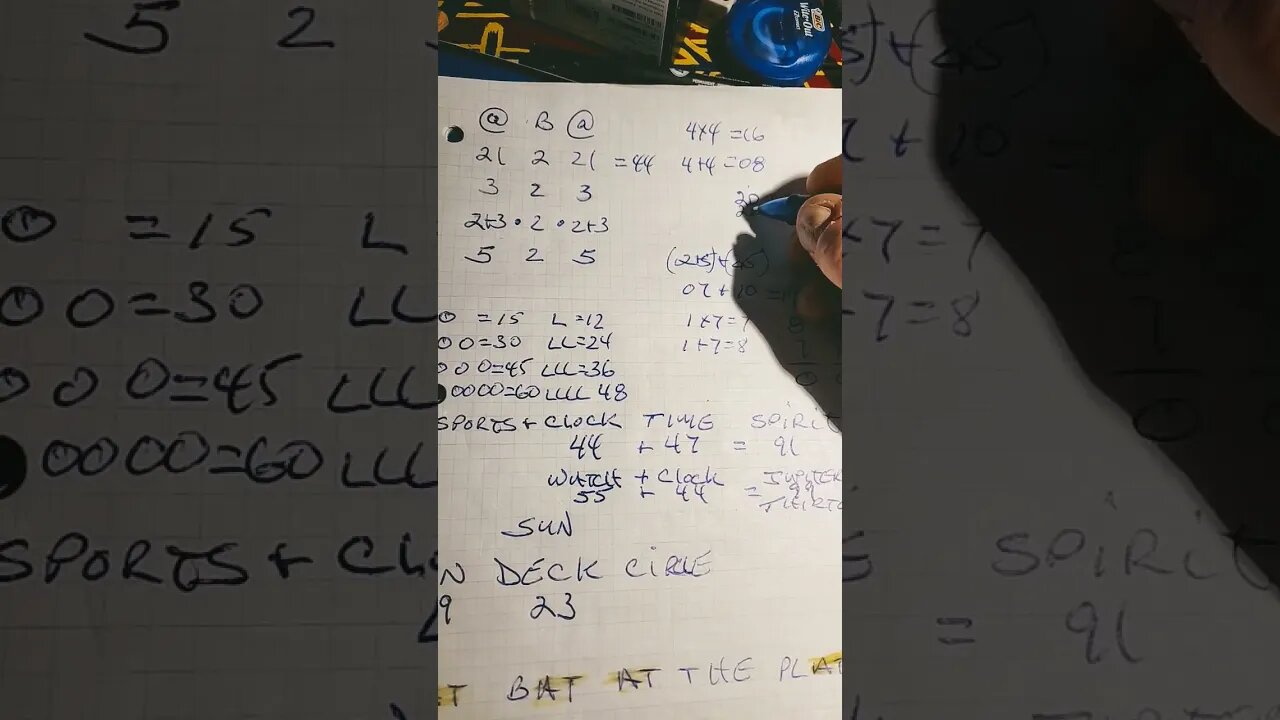 BIC
Wite·Out
@ B @
21 2 21 = 44
4x4 =16
4+4 =08
3 2 3
2+3 • 2 • 2+3
5 2 5
(2+5)+(
07 + 10 =
0 =15 L =12
1x7=7
00=30 LL=24
1+7=8
000=45 LLL=36
0000=60 LLLL 48
SPORTS + CLOCK TIME SPIRIT
44 + 47 = 91
WATCH + CLOCK JUPITER
55 + 44 = 99
SUN
N DECK CIRCLE
9 23
AT BAT AT THE PLAT